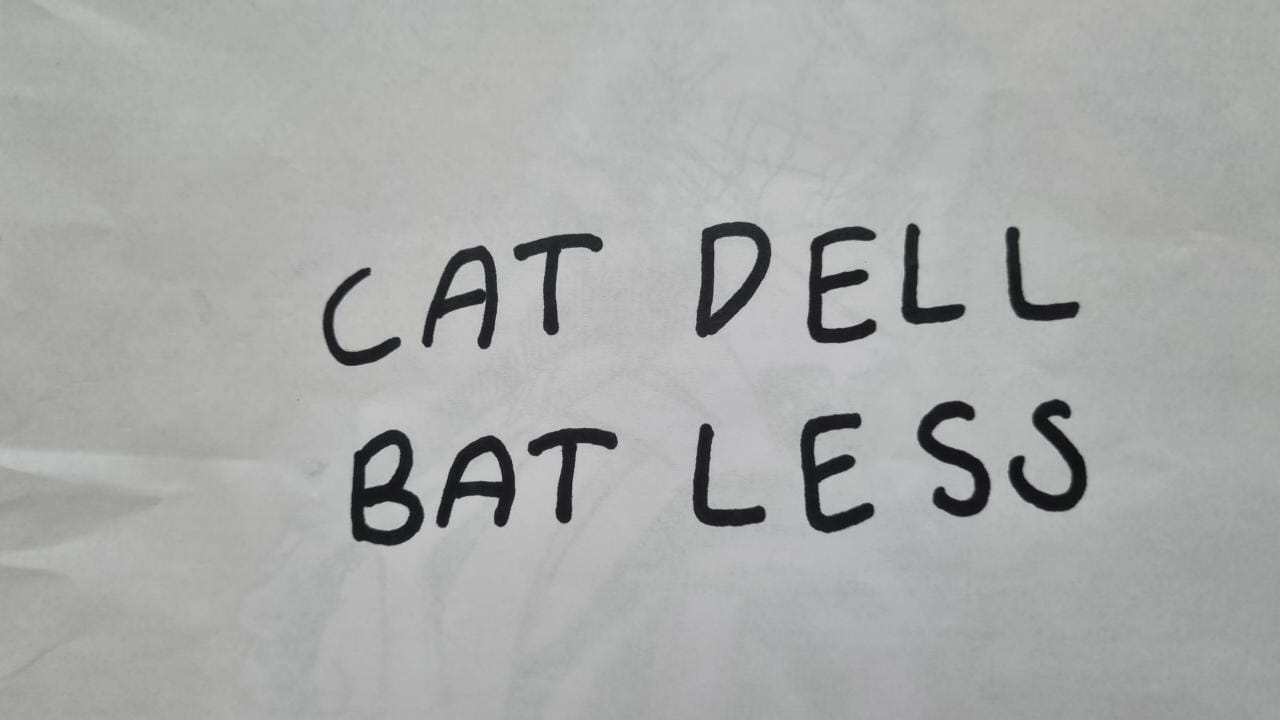 CAT DELL
BAT LESS